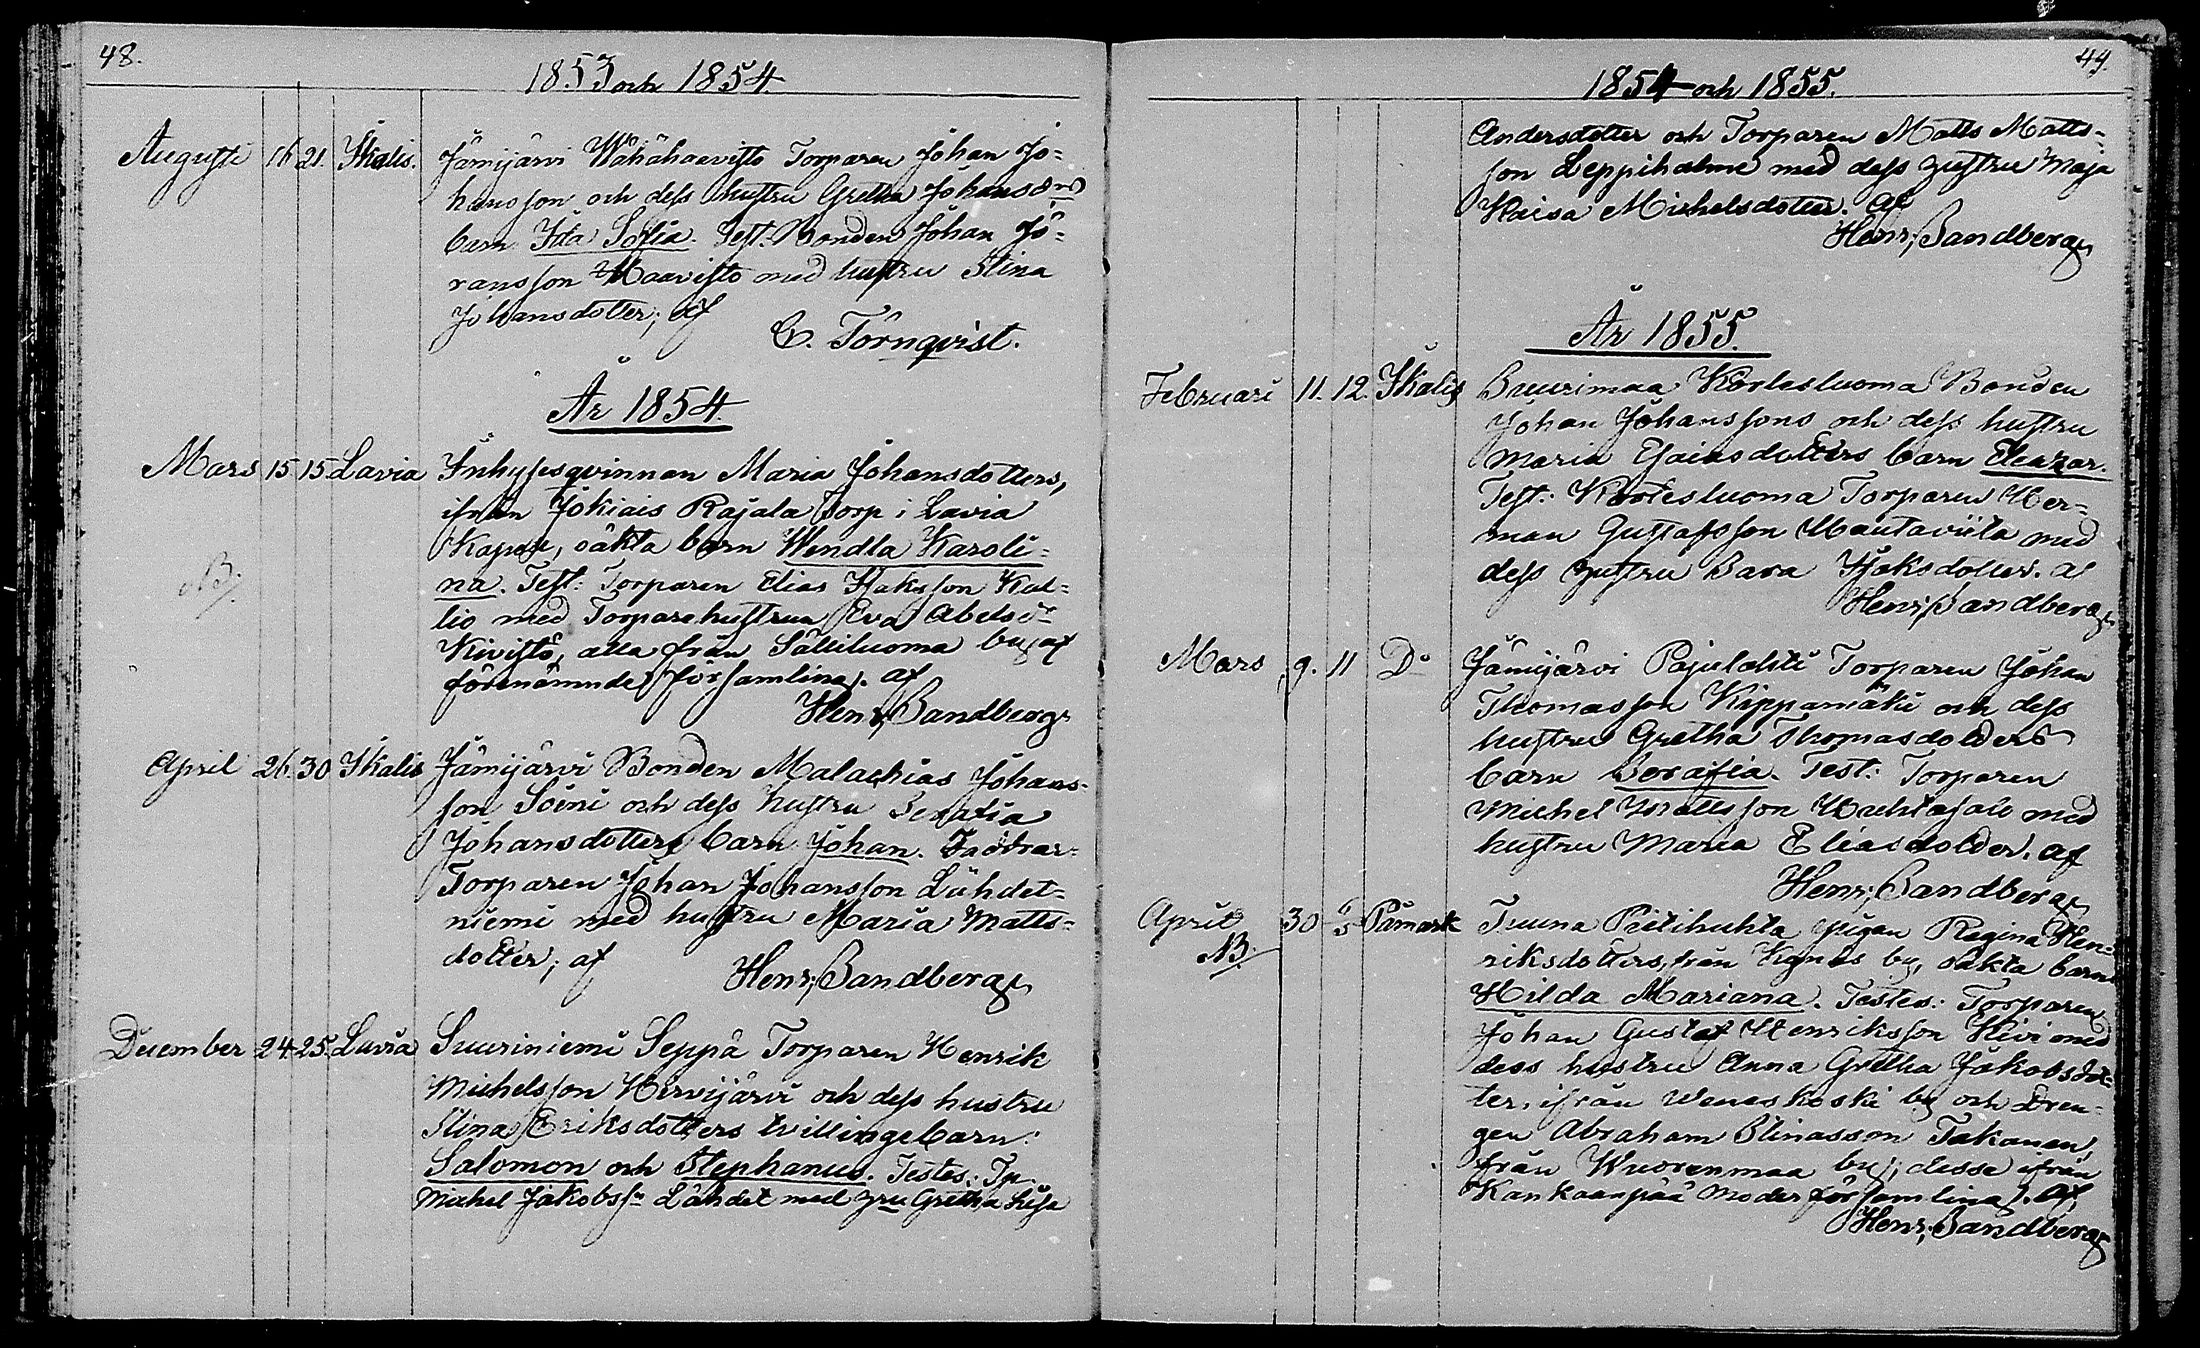 48.
1853 och 1854
Augusti 16 21. Ikalis. Jämijärvi Wähähaavisto Torparen Johan Jo-
hansson och dess hustru Greta Johansdrs
barn Ida Sofia. Test. Bonden Johan Jö-
ransson Haavisto med hustru Stina
Johansdotter; af
C. Törnqvist.
År 1854
Mars 15 15 Lavia Inhysesqvinnan Maria Johansdotters,
ifrån Jokiais Rajala Torp i Lavia
Kapell, oäkta barn Wendla Karoli-
NB. na. Test: Torparen Elias Isaksson Kal-
lio med Torparehustrun Eva Abelsdr
Kivistö, alla från Sälliluoma by af
förenämnde församling. af
Henr. Sandberg
April 26. 30 Ikalis Jämijärvi Bonden Malachias Johans-
son Soini och dess hustru Serafia
Johansdotters barn Johan. Faddrar:
Torparen Johan Johansson Lähdet-
niemi med hustru Maria Matts-
dotter; af
Henr; Sandberg
December 24 25. Lavia Suuriniemi Seppä Torparen Henrik
Michelsson Hirvijärvi och dess hustru
Stina Eriksdotters tvillingebarn:
Salomon och Stephanus. Testes: Tp.
Michel Jakobssn Lähdet med hru Gretha Lisa
49.
1854 och 1855.
Andersdotter och Torparen Matts Matts-
son Leppiholme med dess hustru Maja
Kaisa Michelsdotter. af
Henr; Sandberg
År 1855.
Februari 11. 12. Ikalis Suurimaa Kortesluoma Bonden
Johan Johanssons och dess hustru
Maria Esaiasdotters barn Eleazar.
Test: Kortesluoma Torparen Her-
man Gustafsson Hautaviita med
dess hustru Sara Isaksdotter. af
Henr; Sandberg
Mars 9. 11 Do Jämijärvi Pajulahti Torparen Johan
Thomasson Kippamäki och dess
hustru Gretha Thomasdotters
barn Serafia. Test: Torparen
Michel Mattsson Huhtasalo med
hustru Maria Eliasdotter. af
Henr; Sandberg
April 30 Påmark Tuuna Pitihuhta pigan Regina Hen-
NB. riksdotters, från Kynäs by, oäkta barn
Hilda Mariana. Testes: Torparen
Johan Gustaf Henriksson Kivi med
dess hustru Anna Gretha Jakobsdot-
ter, ifrån Weneskoski by och Dren-
gen Abraham Elinasson Takanen,
från Wuorenmaa by; dessa ifrån
Kankaanpää moderförsamling. af
Henr; Sandberg